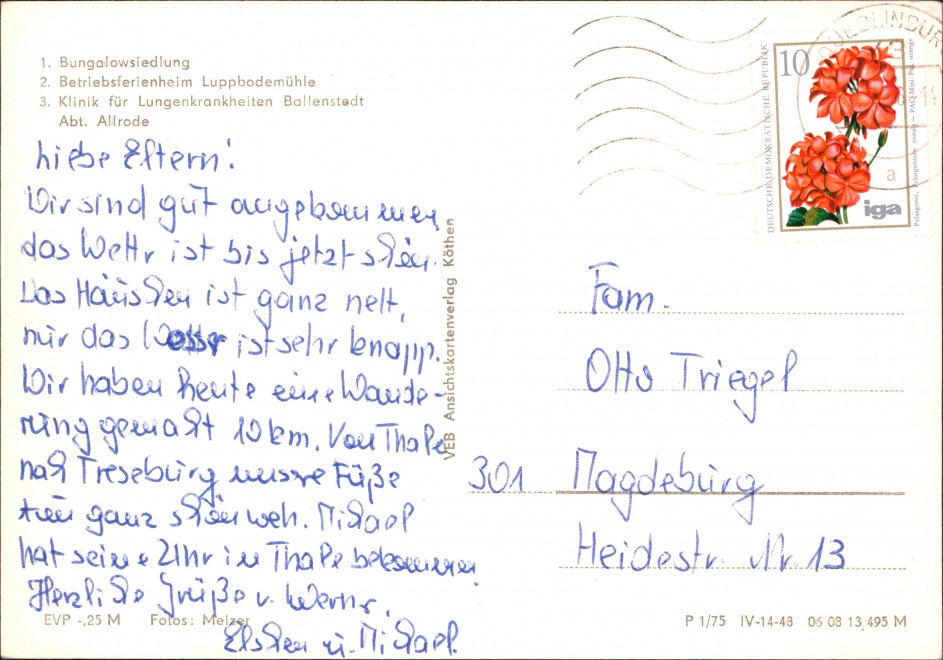 1. Bungalowsiedlung
2. Betriebsferienheim Luppbodemühle
3. Klinik für Lungenkrankheiten Ballenstedt
Abt. Allrode
Liebe Eltern!
Wir sind gut angekommen
das Wettr ist bis jetzt schön.
Das Häuschen ist ganz nett,
nur das Wasser ist sehr knapp.
Wir haben heute eine Wande-
rung gemacht 10 km. Von Thale
nach Treseburg unsere Füße
tun ganz schön weh. Michael
hat seine Uhr in Thale bekommen.
Herzliche Grüße v. Werner,
Elschen u. Michael.
EVP -,25 M Fotos: Melzer
VEB Ansichtskartenverlag Köthen
QUEDLINBUR
a
DEUTSCHE DEMOKRATISCHE REPUBLIK
10
iga
Pelargonie, Pelargonium zonale — PAC Mini-Pel. orange
Fam.
Otto Triegel
301 Magdeburg
Heidestr. Nr. 13
P 1/75 IV-14-48 06 08 13 495 M